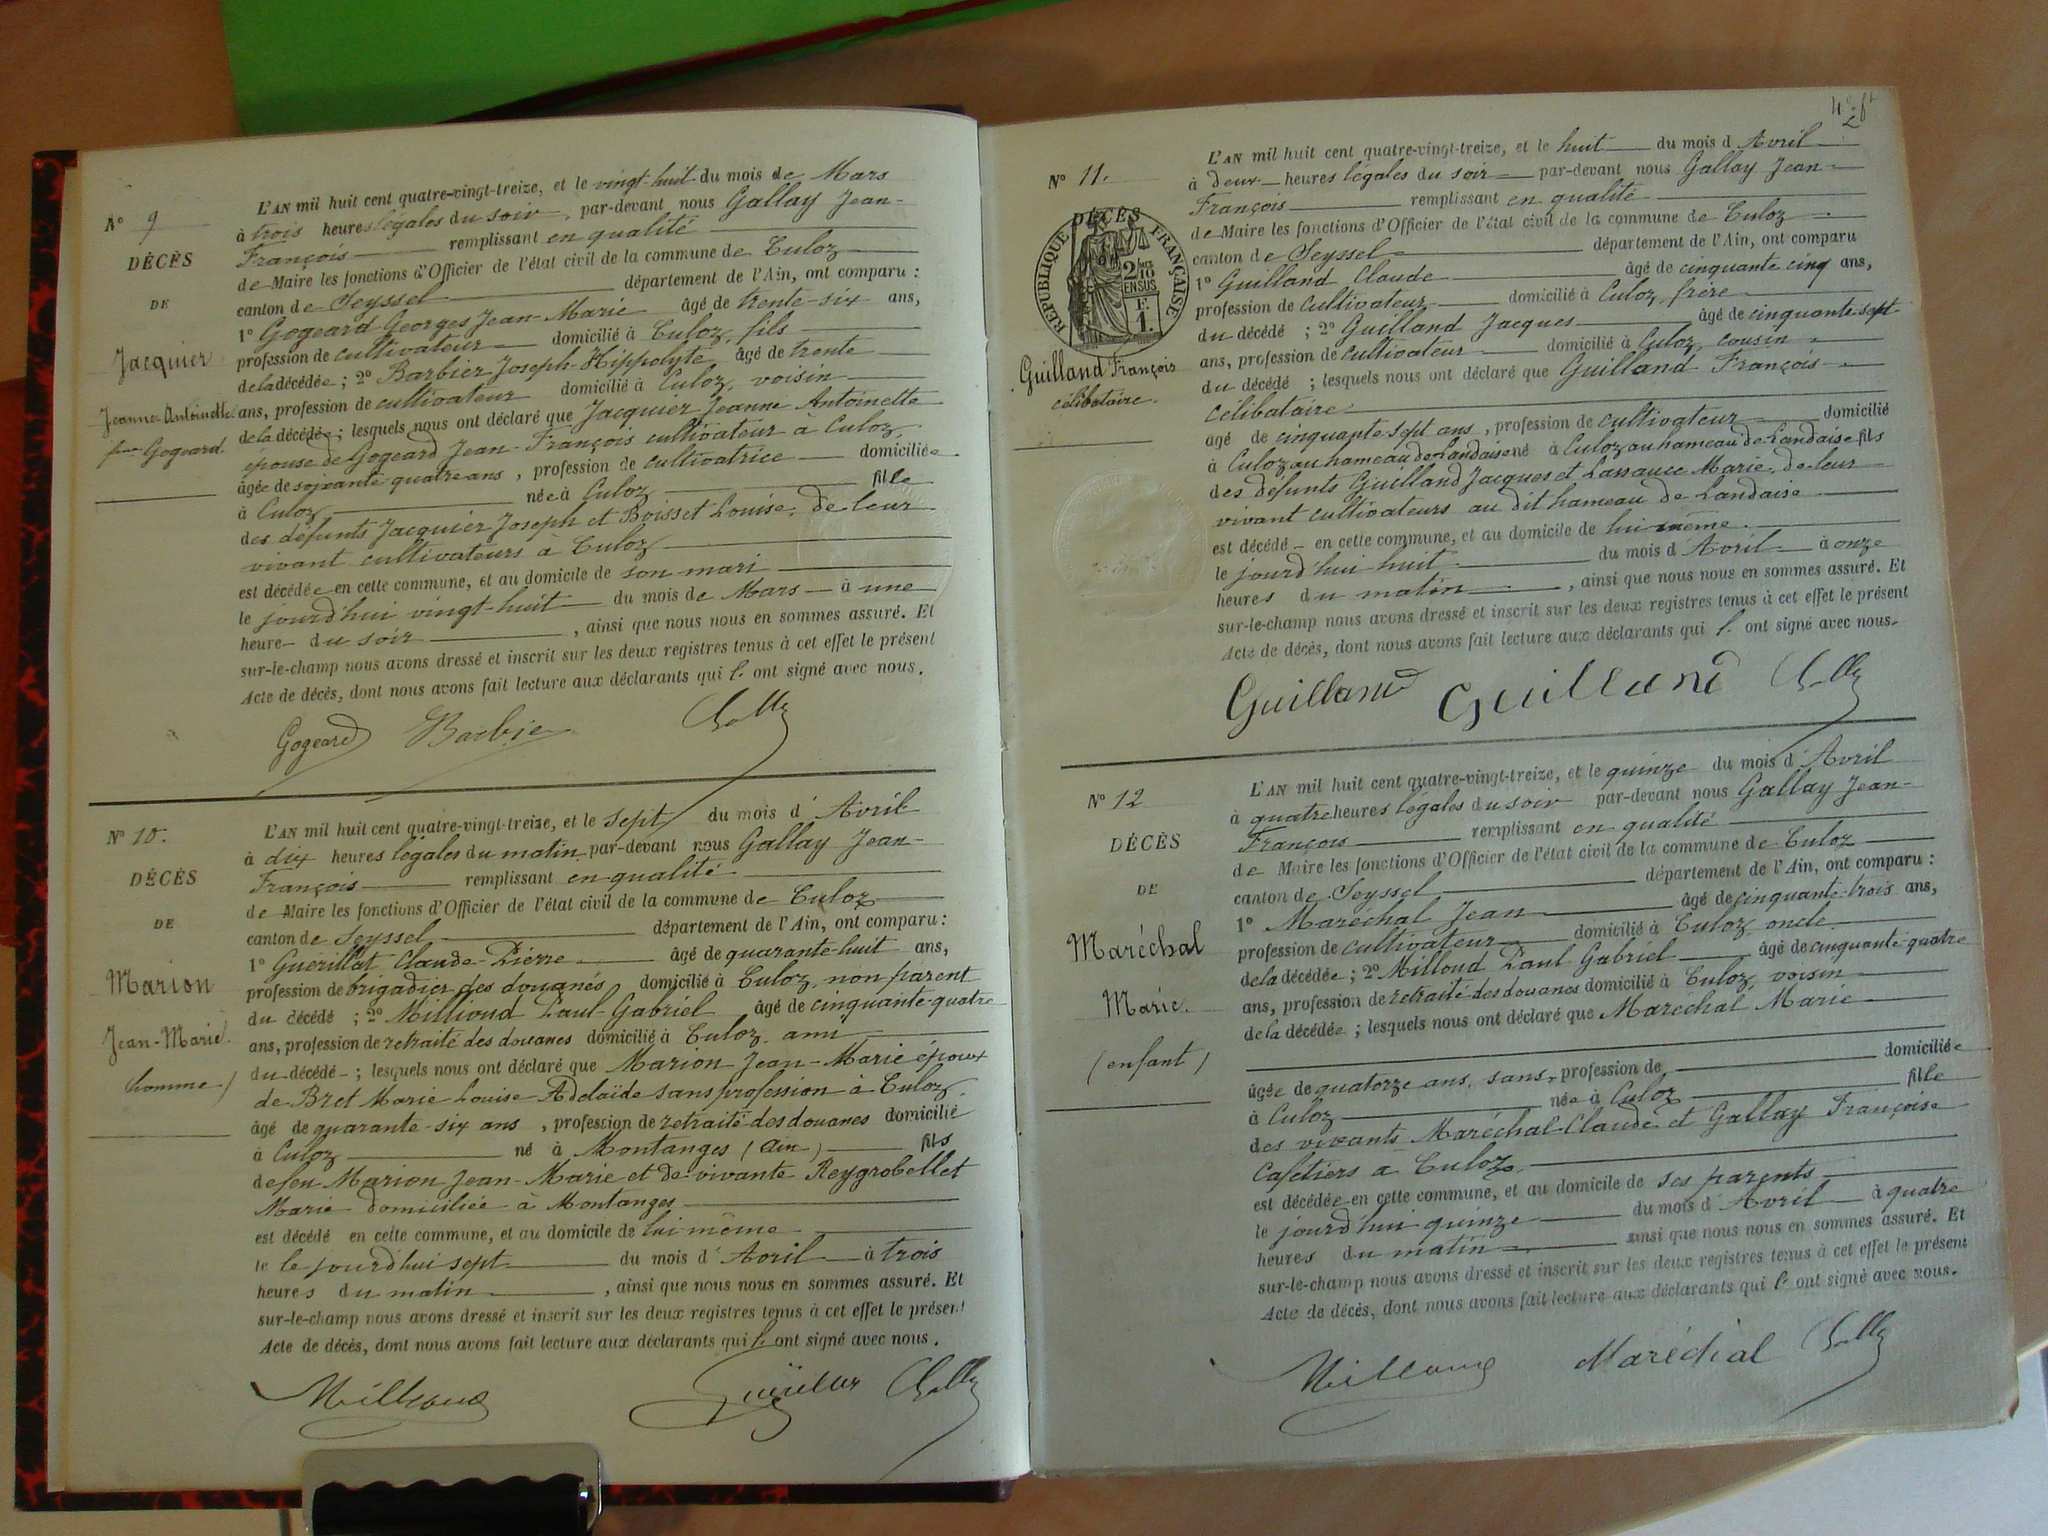 N° 9
DÉCÈS
DE
Jacquier
Jeanne Antoinette
fme Gogeard
L'AN mil huit cent quatre-vingt-treize, et le vingt-huit du mois de Mars
à trois heures légales du soir, par-devant nous Gallay Jean-
François remplissant en qualité
de Maire les fonctions d'Officier de l'état civil de la commune de Culoz
canton de Seyssel département de l'Ain, ont comparu :
1° Gogeard Georges Jean-Marie âgé de trente-six ans,
profession de cultivateur domicilié à Culoz, fils
de la décédée ; 2° Barbier Joseph-Hippolyte, âgé de trente
ans, profession de cultivateur domicilié à Culoz, voisin
de la décédée ; lesquels nous ont déclaré que Jacquier Jeanne Antoinette
épouse de Gogeard Jean-François cultivateur à Culoz,
âgée de soixante quatre ans, profession de cultivatrice domiciliée
à Culoz née à Culoz fille
des défunts Jacquier Joseph et Boisset Louise, de leur
vivant cultivateurs à Culoz
est décédée en cette commune, et au domicile de son mari
le jourd'hui vingt-huit du mois de Mars à une
heure du soir, ainsi que nous nous en sommes assuré. Et
sur-le-champ nous avons dressé et inscrit sur les deux registres tenus à cet effet le présent
Acte de décès, dont nous avons fait lecture aux déclarants qui l' ont signé avec nous.
Gogeard Barbie Gallay
N° 10.
DÉCÈS
DE
Marion
Jean-Marie
(homme)
L'AN mil huit cent quatre-vingt-treize, et le sept du mois d'Avril
à dix heures légales du matin par-devant nous Gallay Jean-
François remplissant en qualité
de Maire les fonctions d'Officier de l'état civil de la commune de Culoz
canton de Seyssel département de l'Ain, ont comparu :
1° Guérillat Claude-Pierre âgé de quarante-huit ans,
profession de brigadier des douanes domicilié à Culoz, non parent
du décédé ; 2° Millioud Paul-Gabriel âgé de cinquante-quatre
ans, profession de retraité des douanes domicilié à Culoz, ami
du décédé ; lesquels nous ont déclaré que Marion Jean-Marie époux
de Bret Marie Louise Adelaïde sans profession à Culoz
âgé de quarante-six ans, profession de retraité des douanes domicilié
à Culoz né à Montanges (Ain) fils
de feu Marion Jean-Marie et de vivante Reygrobellet
Marie domiciliée à Montanges
est décédé en cette commune, et au domicile de lui même
le le jourd'hui sept du mois d'Avril à trois
heures du matin, ainsi que nous nous en sommes assuré. Et
sur-le-champ nous avons dressé et inscrit sur les deux registres tenus à cet effet le présent
Acte de décès, dont nous avons fait lecture aux déclarants qui l' ont signé avec nous.
Millioud Guérillat Gallay
N° 11.
DÉCÈS
RÉPUBLIQUE FRANÇAISE
2/10 EN SUS
F. 1.
Guilland François
célibataire.
L'AN mil huit cent quatre-vingt-treize, et le huit du mois d'Avril
à deux heures légales du soir par-devant nous Gallay Jean-
François remplissant en qualité
de Maire les fonctions d'Officier de l'état civil de la commune de Culoz
canton de Seyssel département de l'Ain, ont comparu
1° Guilland Claude âgé de cinquante cinq ans,
profession de cultivateur domicilié à Culoz, frère
du décédé ; 2° Guilland Jacques âgé de cinquante-sept
ans, profession de cultivateur domicilié à Culoz, cousin
du décédé ; lesquels nous ont déclaré que Guilland François
Célibataire
âgé de cinquante-sept ans, profession de cultivateur domicilié
à Culoz au hameau de Landaise né à Culoz au hameau de Landaise fils
des défunts Guilland Jacques et Lassauce Marie, de leur
vivant cultivateurs au dit hameau de Landaise
est décédé en cette commune, et au domicile de lui même.
le jourd'hui huit du mois d'Avril à onze
heures du matin, ainsi que nous nous en sommes assuré. Et
sur-le-champ nous avons dressé et inscrit sur les deux registres tenus à cet effet le présent
Acte de décès, dont nous avons fait lecture aux déclarants qui l' ont signé avec nous.
Guilland Guilland Gallay
N° 12
DÉCÈS
DE
Maréchal
Marie.
(enfant)
L'AN mil huit cent quatre-vingt-treize, et le quinze du mois d'Avril
à quatre heures légales du soir par-devant nous Gallay Jean-
François remplissant en qualité
de Maire les fonctions d'Officier de l'état civil de la commune de Culoz
canton de Seyssel département de l'Ain, ont comparu :
1° Maréchal Jean âgé de cinquante-trois ans,
profession de cultivateur domicilié à Culoz oncle
de la décédée ; 2° Millioud Paul Gabriel âgé de cinquante-quatre
ans, profession de retraité des douanes domicilié à Culoz, voisin
de la décédée ; lesquels nous ont déclaré que Maréchal Marie
âgée de quatorze ans, sans profession de domiciliée
à Culoz née à Culoz fille
des vivants Maréchal Claude et Gallay Françoise
Cafetiers à Culoz
est décédée en cette commune, et au domicile de ses parents
le jourd'hui quinze du mois d'Avril à quatre
heures du matin ainsi que nous nous en sommes assuré. Et
sur-le-champ nous avons dressé et inscrit sur les deux registres tenus à cet effet le présent
Acte de décès, dont nous avons fait lecture aux déclarants qui l' ont signé avec nous.
Millioud Maréchal Gallay